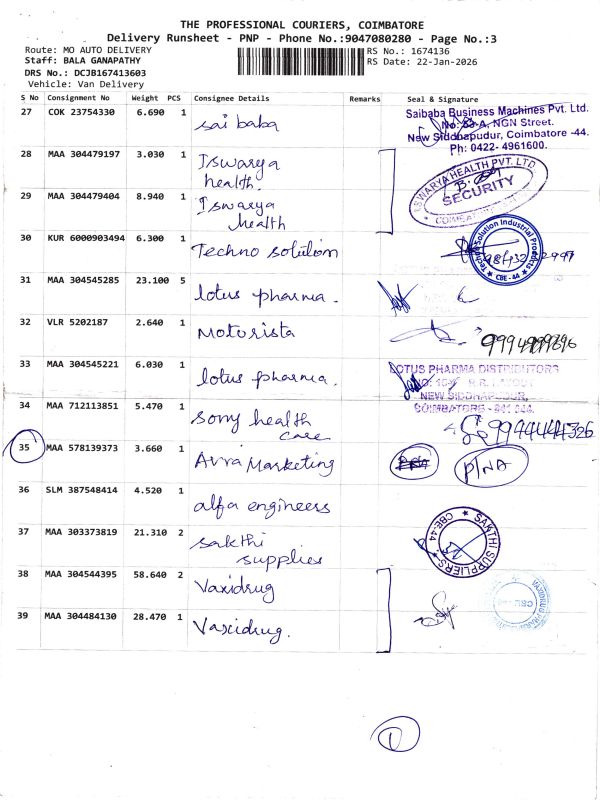 THE PROFESSIONAL COURIERS, COIMBATORE
Delivery Runsheet - PNP - Phone No.:9047080280 - Page No.:3
Route: MO AUTO DELIVERY
RS No.: 1674136
Staff: BALA GANAPATHY
RS Date: 22-Jan-2026
DRS No.: DCJB167413603
Vehicle: Van Delivery
S No Consignment No Weight PCS Consignee Details Remarks Seal & Signature
27 COK 23754330 6.690 1 sai baba
Saibaba Business Machines Pvt. Ltd.
No: 53-A, NGN Street.
New Siddhapudur, Coimbatore -44.
Ph: 0422- 4961600.
28 MAA 304479197 3.030 1 Iswarya
health.
ISWARYA HEALTH PVT. LTD.
SECURITY
29 MAA 304479404 8.940 1 Iswarya
health
30 KUR 6000903494 6.300 1 Techno solution
Techno Solution Industrial Products
CBE - 44
31 MAA 304545285 23.100 5 lotus pharma.
32 VLR 5202187 2.640 1 Motorista
33 MAA 304545221 6.030 1 lotus pharma.
LOTUS PHARMA DISTRIBUTORS
R.R. LAYOUT
NEW SIDDHAPUDUR,
COIMBATORE - 641 044.
34 MAA 712113851 5.470 1 sony health
care
9944444326
35 MAA 578139373 3.660 1 Avra Marketing
P/NA
36 SLM 387548414 4.520 1 alfa engineers
37 MAA 303373819 21.310 2 sakthi
supplies
SAKTHI SUPPLIERS
CBE-44
38 MAA 304544395 58.640 2 Vaxidrug
39 MAA 304484130 28.470 1 Vaxidrug.
1